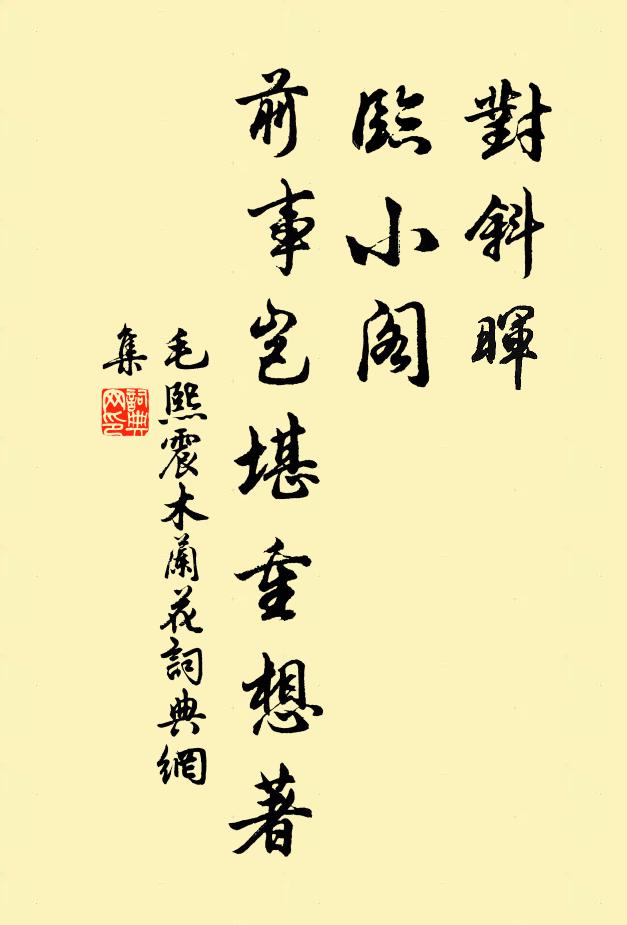 對斜暉
臨小閣
前事豈堪重想著
毛熙震木蘭花詞典網
集
詞典
网印